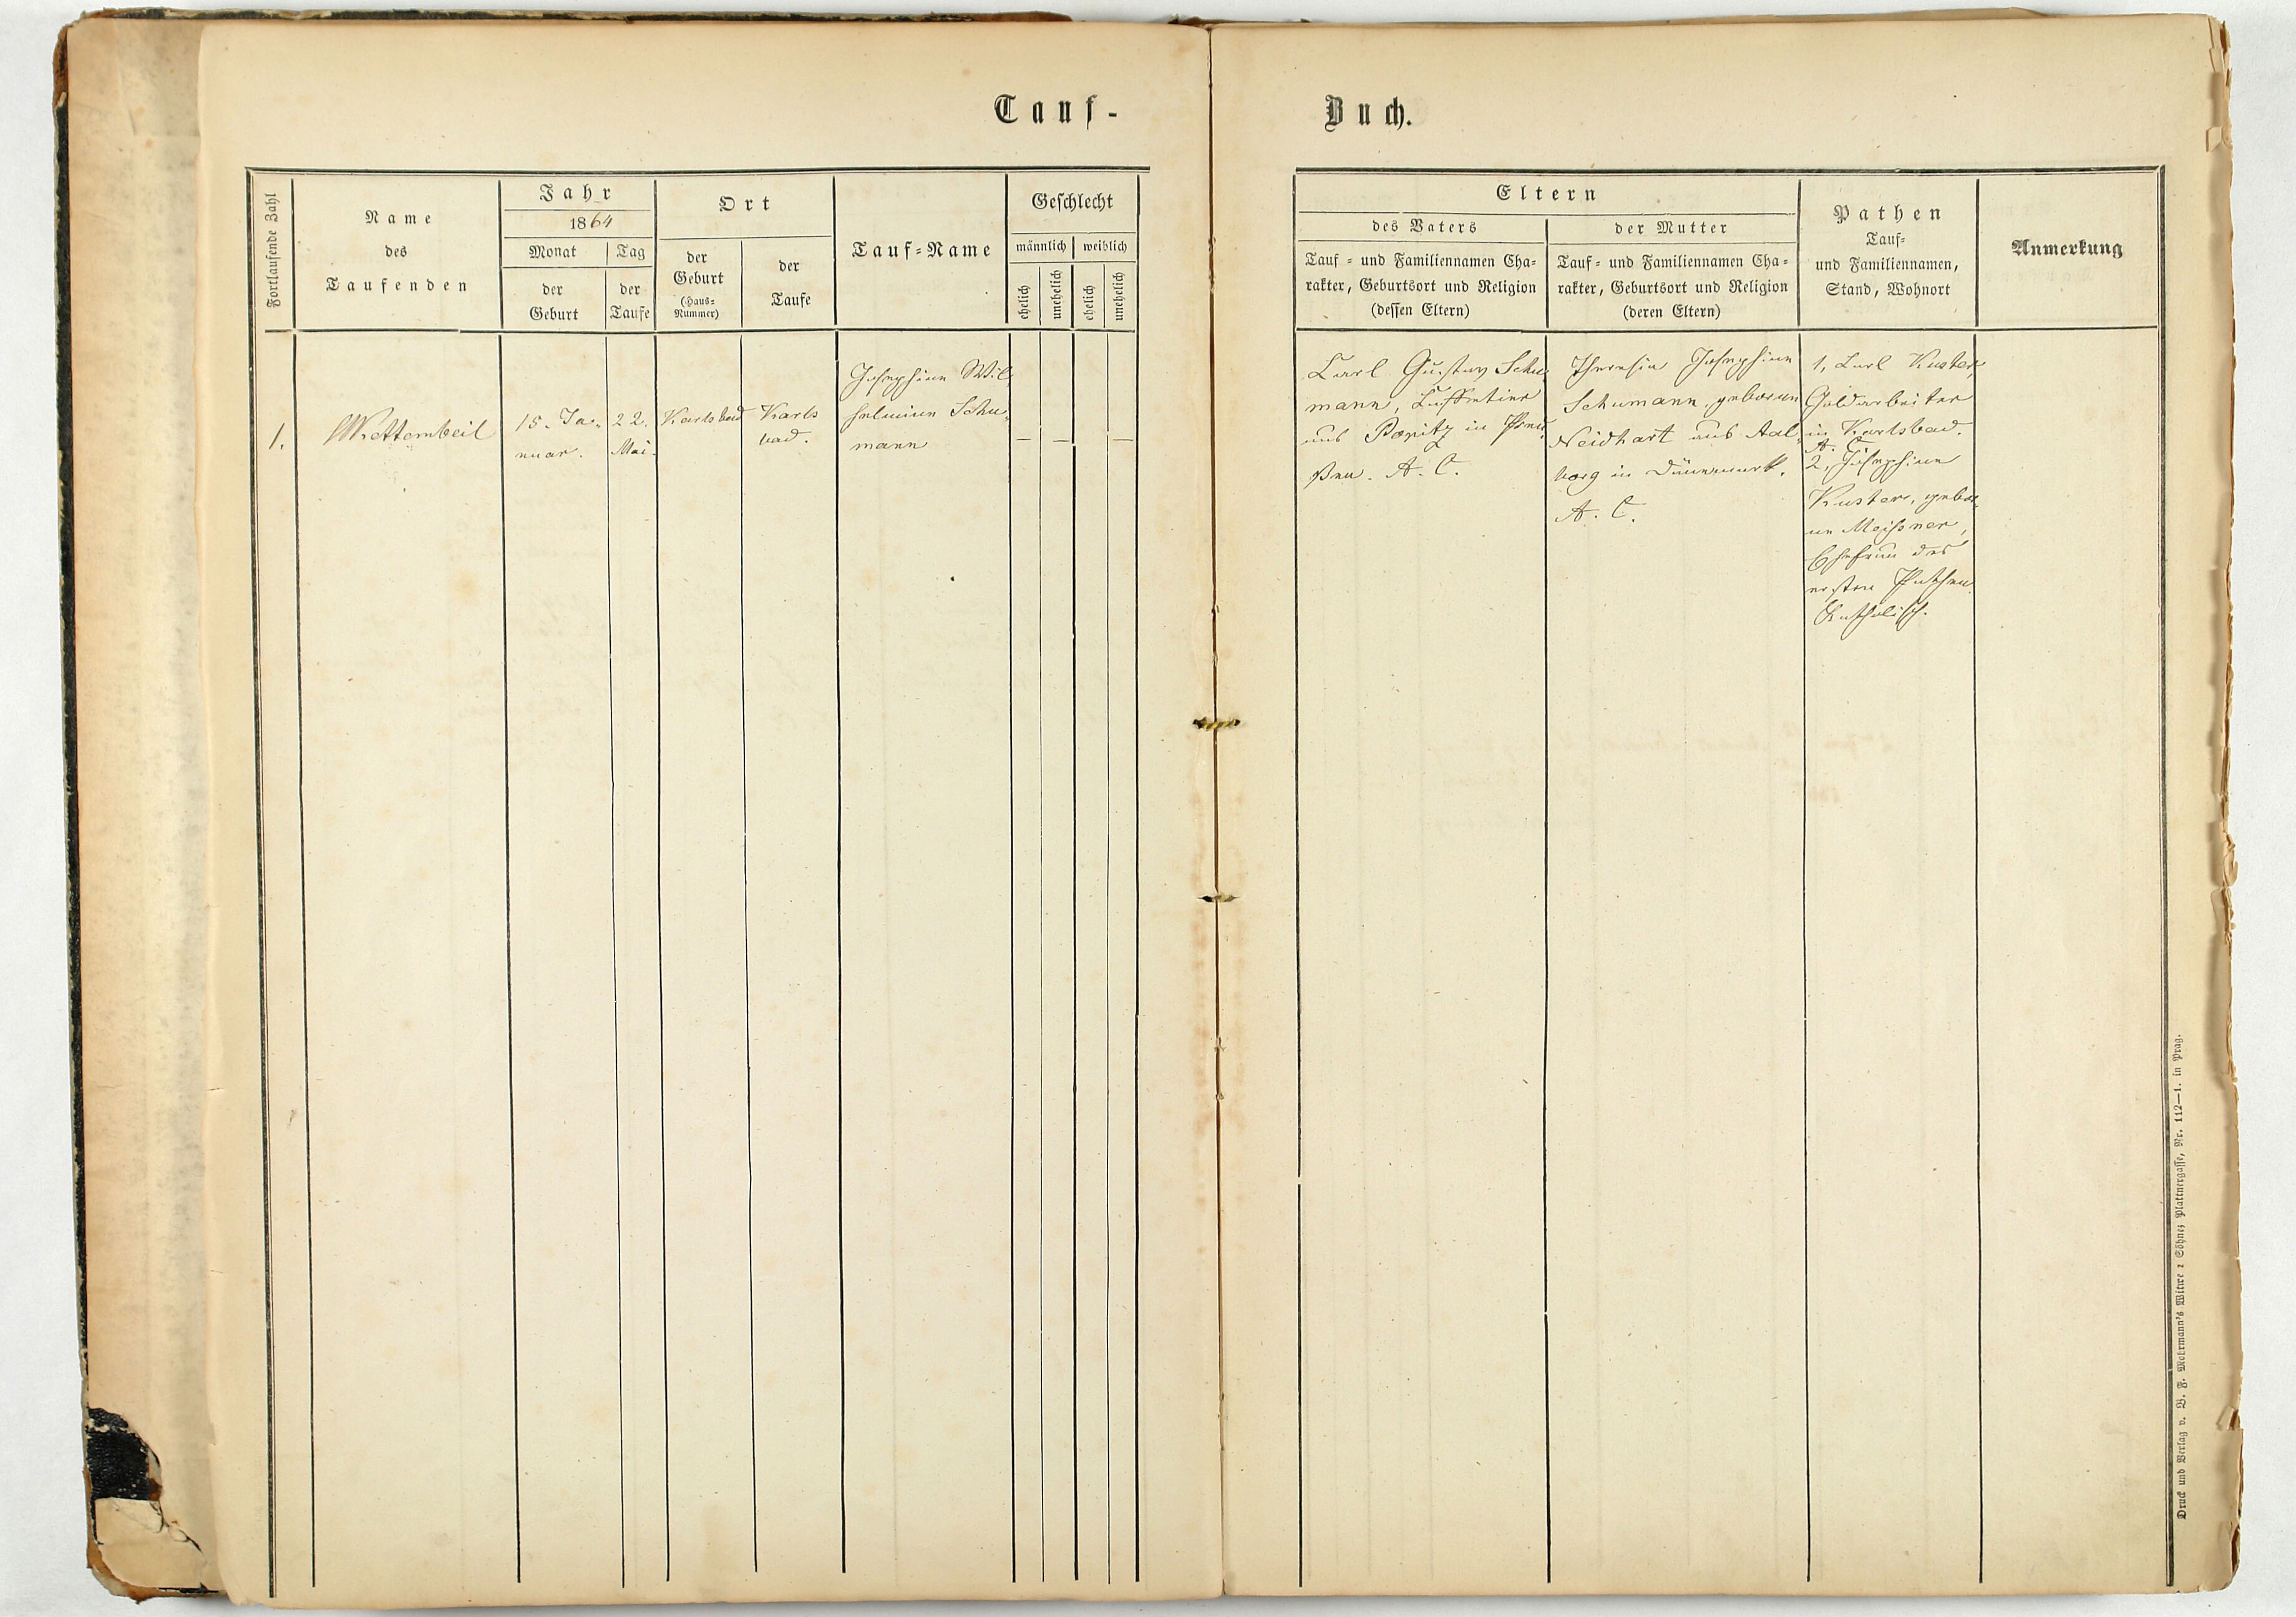 Tauf-
Buch.
Fortlaufende Zahl
Name
des
Taufenden
Jahr
1864
Monat
Tag
der
Geburt
der
Taufe
Ort
der
Geburt
(Haus-
Nummer)
der
Taufe
Tauf-Name
Geschlecht
männlich
weiblich
ehelich
unehelich
ehelich
unehelich
1.
Wettembeil
15. Ja-
nuar.
22.
Mai.
Karlsbad
Karls
bad.
Josephine Wil
helmine Schu-
mann
— — —
Eltern
des Vaters
Tauf- und Familiennamen Cha-
rakter, Geburtsort und Religion
(dessen Eltern)
der Mutter
Tauf- und Familiennamen Cha-
rakter, Geburtsort und Religion
(deren Eltern)
Pathen
Tauf-
und Familiennamen,
Stand, Wohnort
Anmerkung
Carl Gustav Schu-
mann,
aus Popitz in Preu-
ßen. A. C.
Theresia Josephine
Schumann, geborene
Neidhart aus Aal-
borg in Dänemark.
A. C.
1, Carl Kuster,
Goldarbeiter
in Karlsbad.
A. C.
2, Josephine
Kuster, gebor-
ne Meißner,
Ehefrau des
ersten Pathen.
Katholisch.
Druck und Verlag v. B. F. Moermann's Witwe & Söhne; Plattnergasse, Nr. 112—1. in Prag.